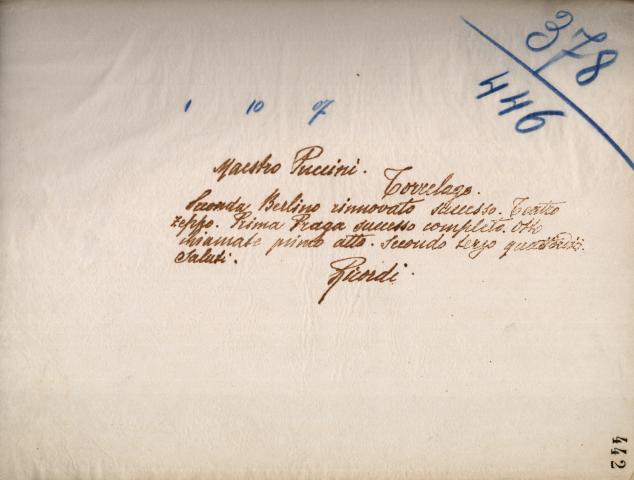 378
446
1 10 07
Maestro Puccini.
Torrelago.
Seconda Berlino rinnovato successo. Teatro
zeppo. Prima Praga successo completo. Otto
chiamate primo atto. Secondo terzo
Saluti.
Ricordi.
442